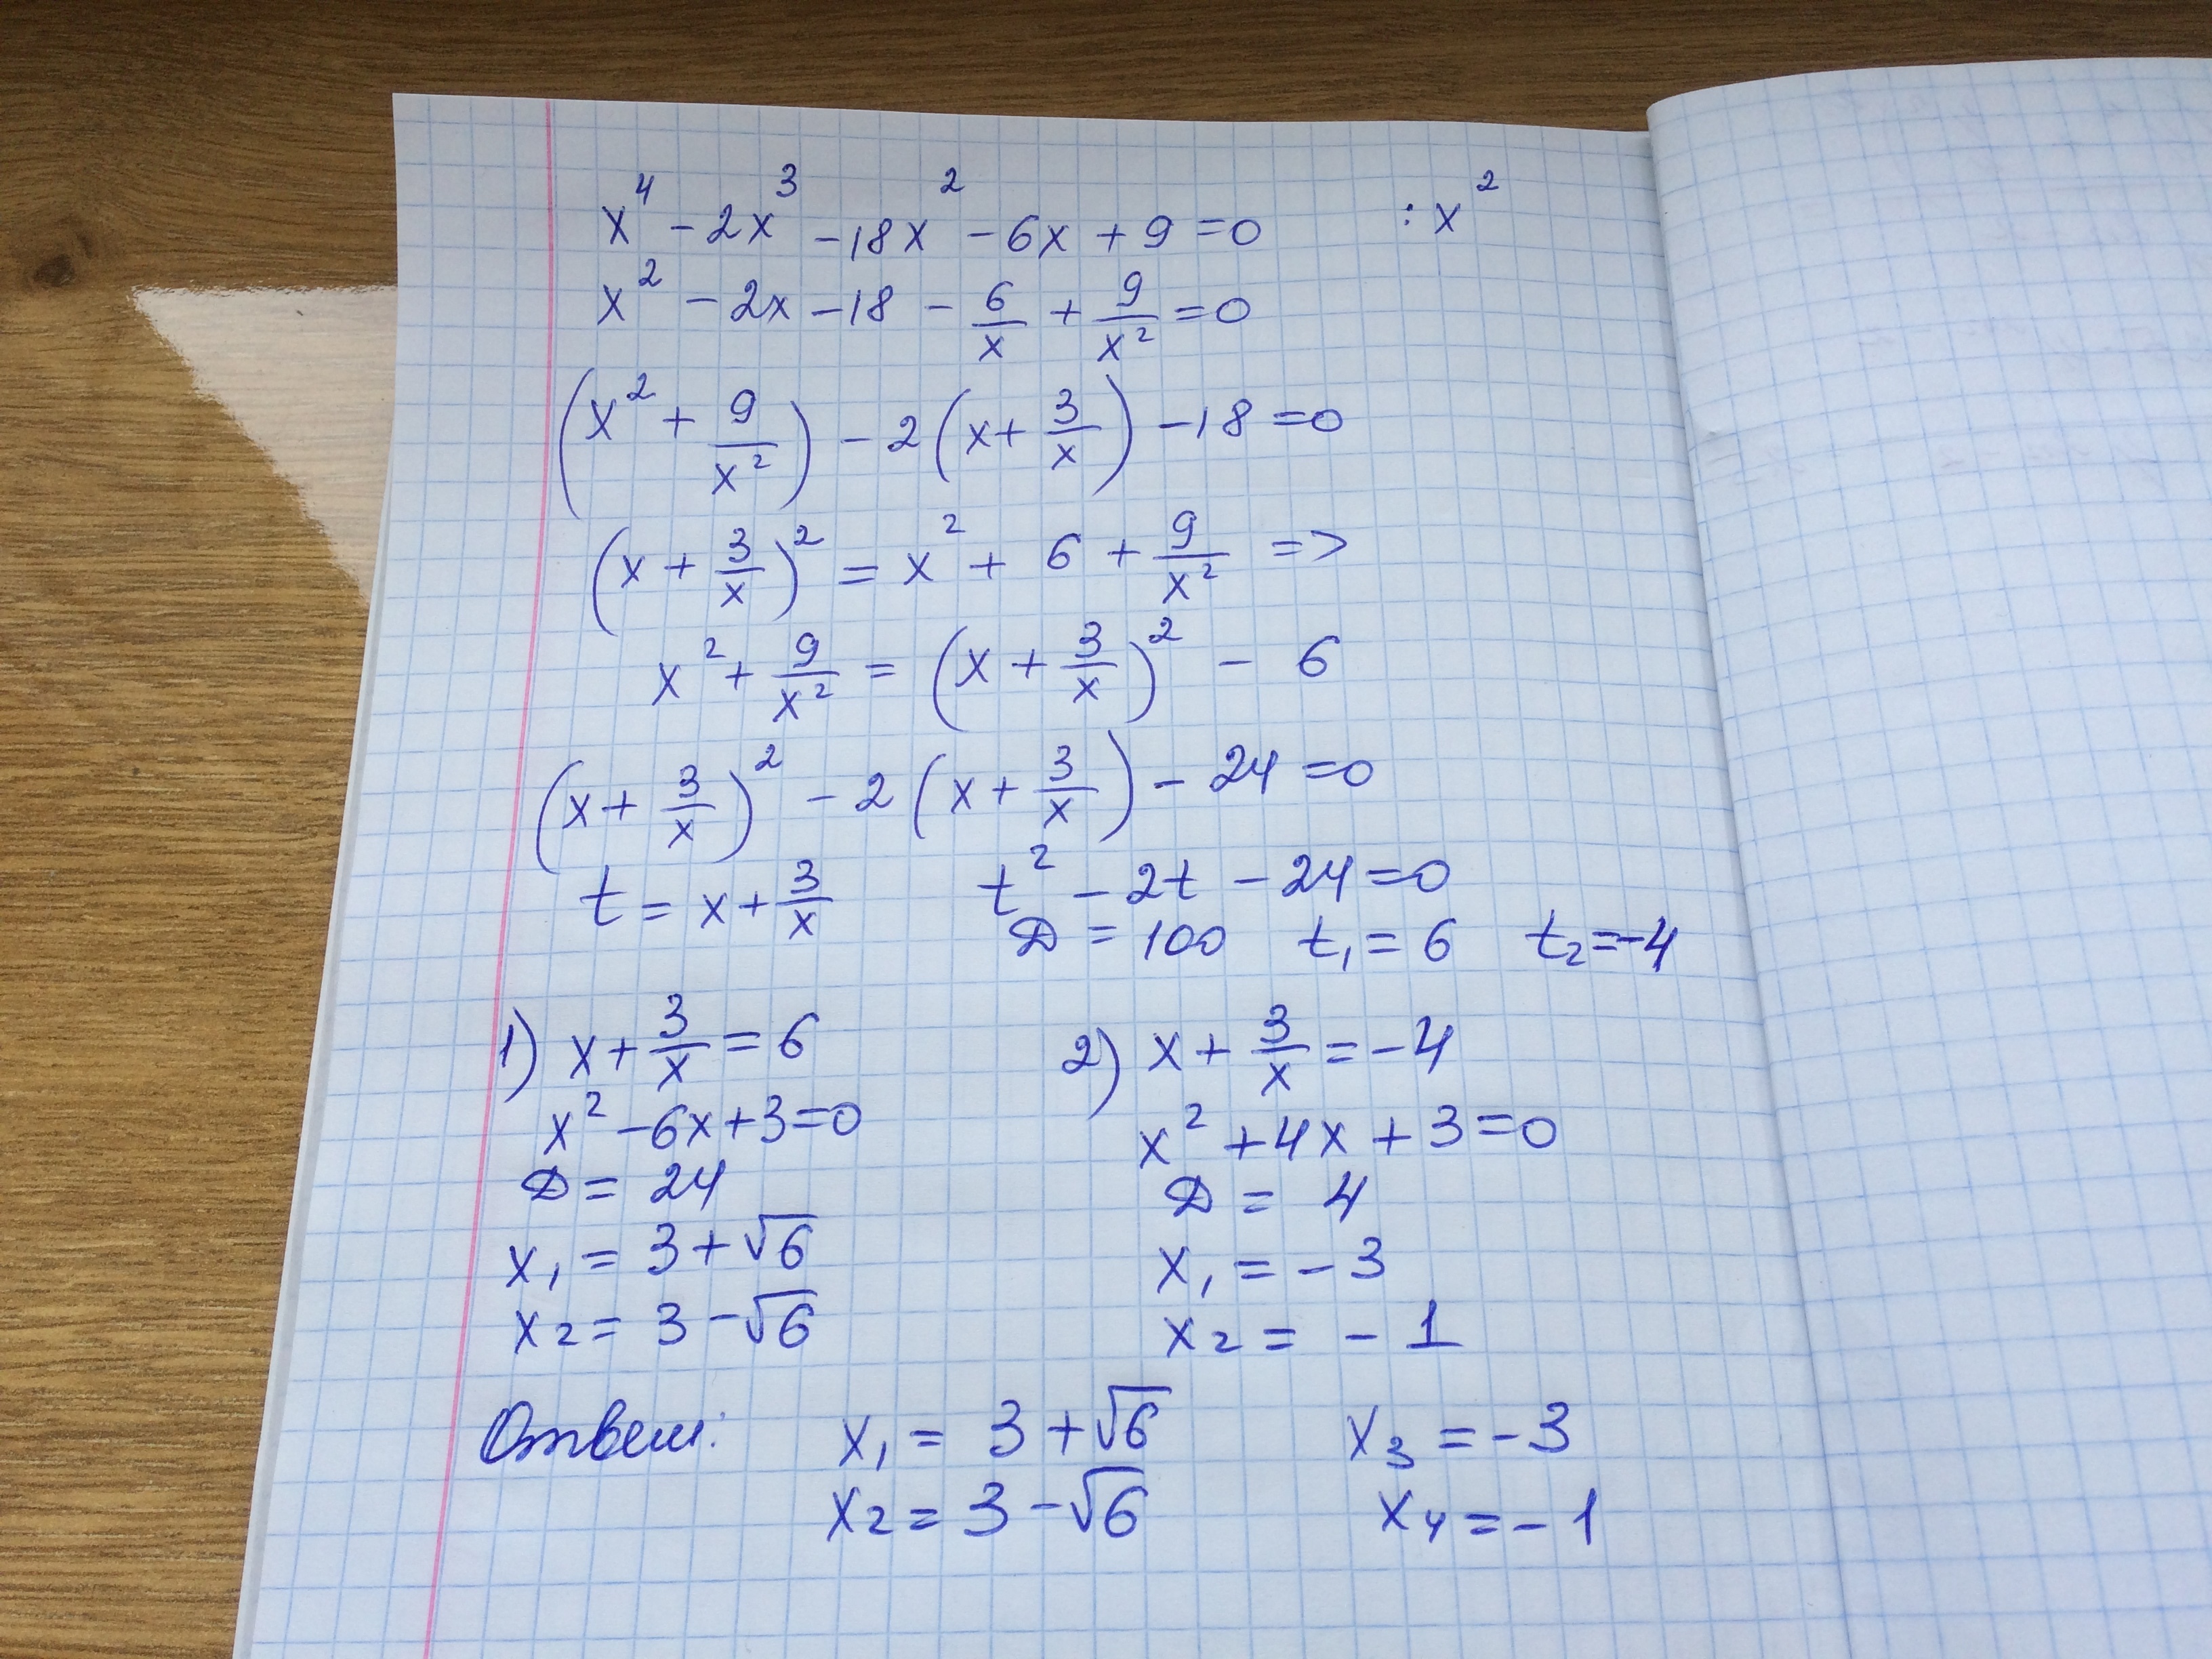 x⁴ - 2x³ - 18x² - 6x + 9 = 0 : x²
x² - 2x - 18 - 6/x + 9/x² = 0
(x² + 9/x²) - 2(x + 3/x) - 18 = 0
(x + 3/x)² = x² + 6 + 9/x² =>
x² + 9/x² = (x + 3/x)² - 6
(x + 3/x)² - 2(x + 3/x) - 24 = 0
t = x + 3/x t² - 2t - 24 = 0
D = 100 t₁ = 6 t₂ = -4
1) x + 3/x = 6 2) x + 3/x = -4
x² - 6x + 3 = 0 x² + 4x + 3 = 0
D = 24 D = 4
x₁ = 3 + √6 x₁ = -3
x₂ = 3 - √6 x₂ = -1
Ответ: x₁ = 3 + √6 x₃ = -3
x₂ = 3 - √6 x₄ = -1